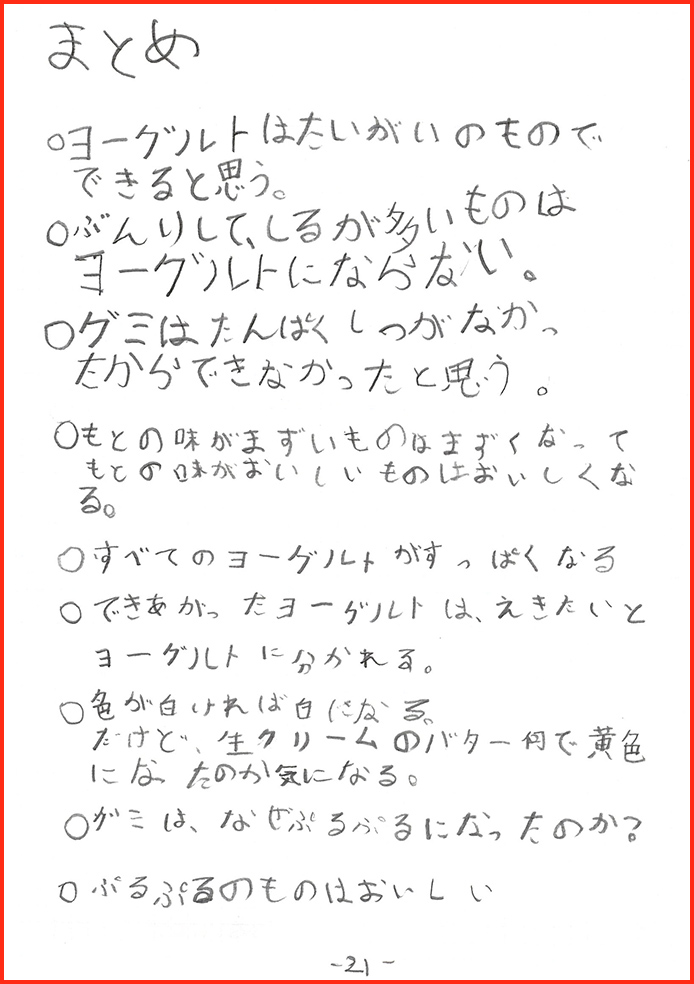 まとめ
○ヨーグルトはたいがいのもので
できると思う。
○ぶんりして、しるが多いものは
ヨーグルトにならない。
○グミはたんぱくしつがなかっ
たからできなかったと思う。
○もとの味がまずいものはまずくなって
もとの味がおいしいものはおいしくな
る。
○すべてのヨーグルトがすっぱくなる
○できあがったヨーグルトは、えきたいと
ヨーグルトに分かれる。
○色が白ければ白になる。
だけど、生クリームのバター何で黄色
になったのか気になる。
○グミは、なぜぷるぷるになったのか?
○ぷるぷるのものはおいしい
-21-